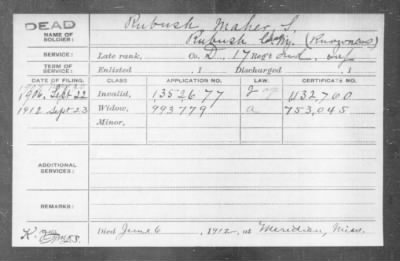 DEAD
NAME OF SOLDIER: Rubush, Maher, S.
Rubush
SERVICE: Late rank, Co. D, 17 Reg't Ind. Inf
TERM OF SERVICE: Enlisted , 1 Discharged , 1
DATE OF FILING. CLASS APPLICATION NO. LAW. CERTIFICATE NO.
1906, Sept 22 Invalid, 1352677 1132760
1912 Sept 23 Widow, 993779 a 753,045
Minor,
ADDITIONAL SERVICES:
REMARKS:
Died June 6, 1912, at Meridian, Miss.